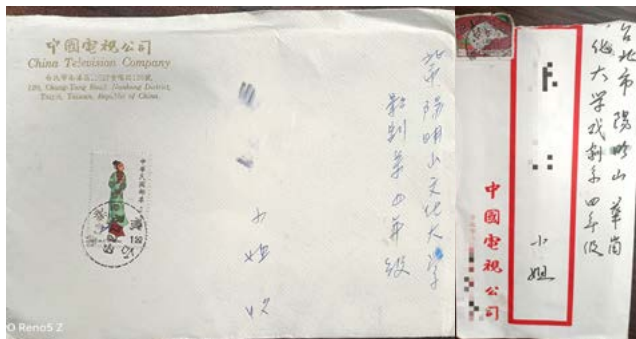 中國電視公司
China Television Company
120, Chung-Yang Road, Nankang District,
Taipei, Taiwan, Republic of China.
中華民國郵票
北市陽明山文化大学
影剧系四年级
小姐 收
O Reno5 Z
台北市陽明山華崗
化大学戏剧系四年级
小姐
中國電視公司